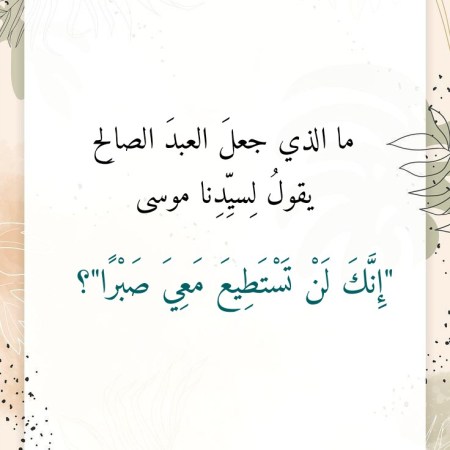 ما الذي جعلَ العبدَ الصالح
يقولُ لِسيِّدِنا موسى
"إِنَّكَ لَنْ تَسْتَطِيعَ مَعِيَ صَبْرًا"؟